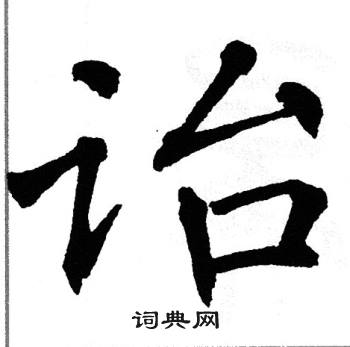 诒
词典网